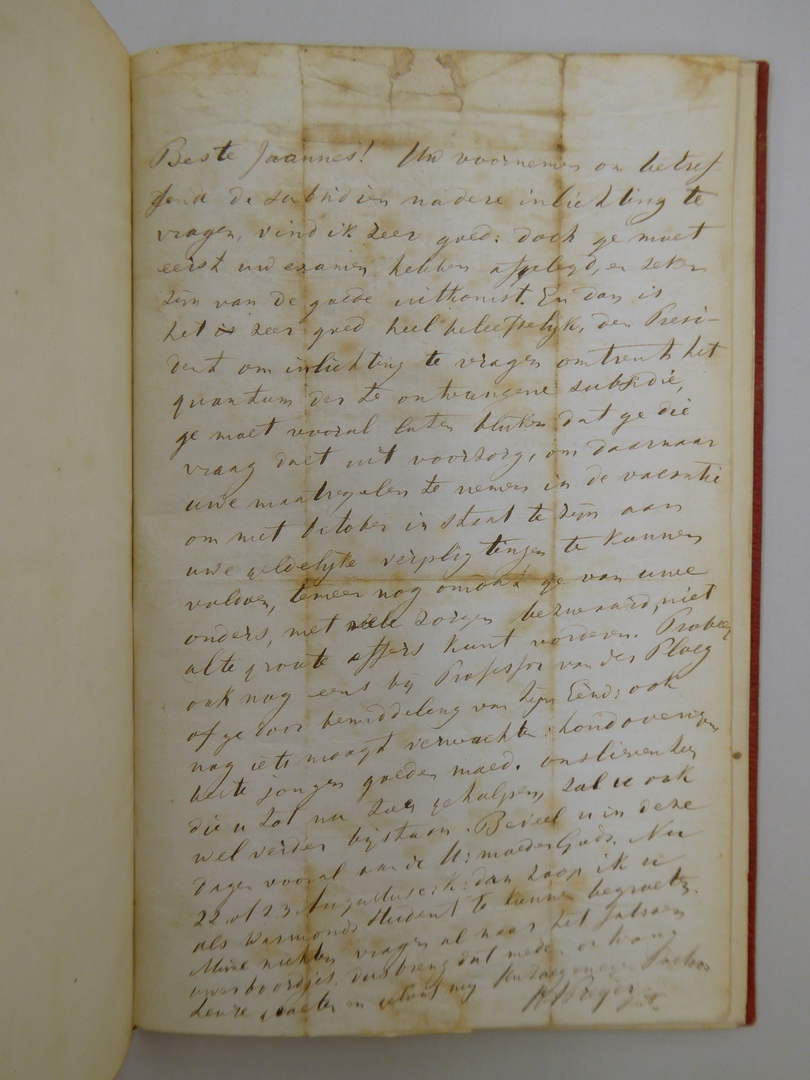 Beste Joannes! Uw voornemen om betref-
fend de subsidien nadere inlichting te
vragen, vind ik zeer goed: doch ge moet
eerst uw examen hebben afgelegd, en zeker
zijn van de goede uitkomst. En dan is
het zeer goed heel beleefdelijk, den Presi-
dent om inlichting te vragen omtrent het
quantum der te ontvangene subsidie,
ge moet vooral laten blijken dat ge die
vraag doet uit voorzorg, om daarnaar
uwe maatregelen te nemen in de vacantie
om met October in staat te zijn aan
uwe geldelijke verpligtingen te kunnen
voldoen, temeer nog omdat ge van uwe
ouders, met vele zorgen bezwaard, niet
al te groote offers kunt vorderen. Probeer
ook nog eens bij Professor van der Ploeg
of ge door bemiddeling van zijn Eerw: ook
nog iets moogt verwachten: houd overigens
beste jongen goeden moed. onslievenheer
die u tot nu toe geholpen, zal u ook
wel verder bijstaan. Beveel u in deze
dagen vooral aan de H: moeder Gods. Nu
22 of 23 Augustus dan hoop ik u
als Warmonds student te kunnen begroeten.
Mijne nichten vragen al naar het
uwer boordjes. dus breng dat mede ontvang
hunne groeten en geloof mij